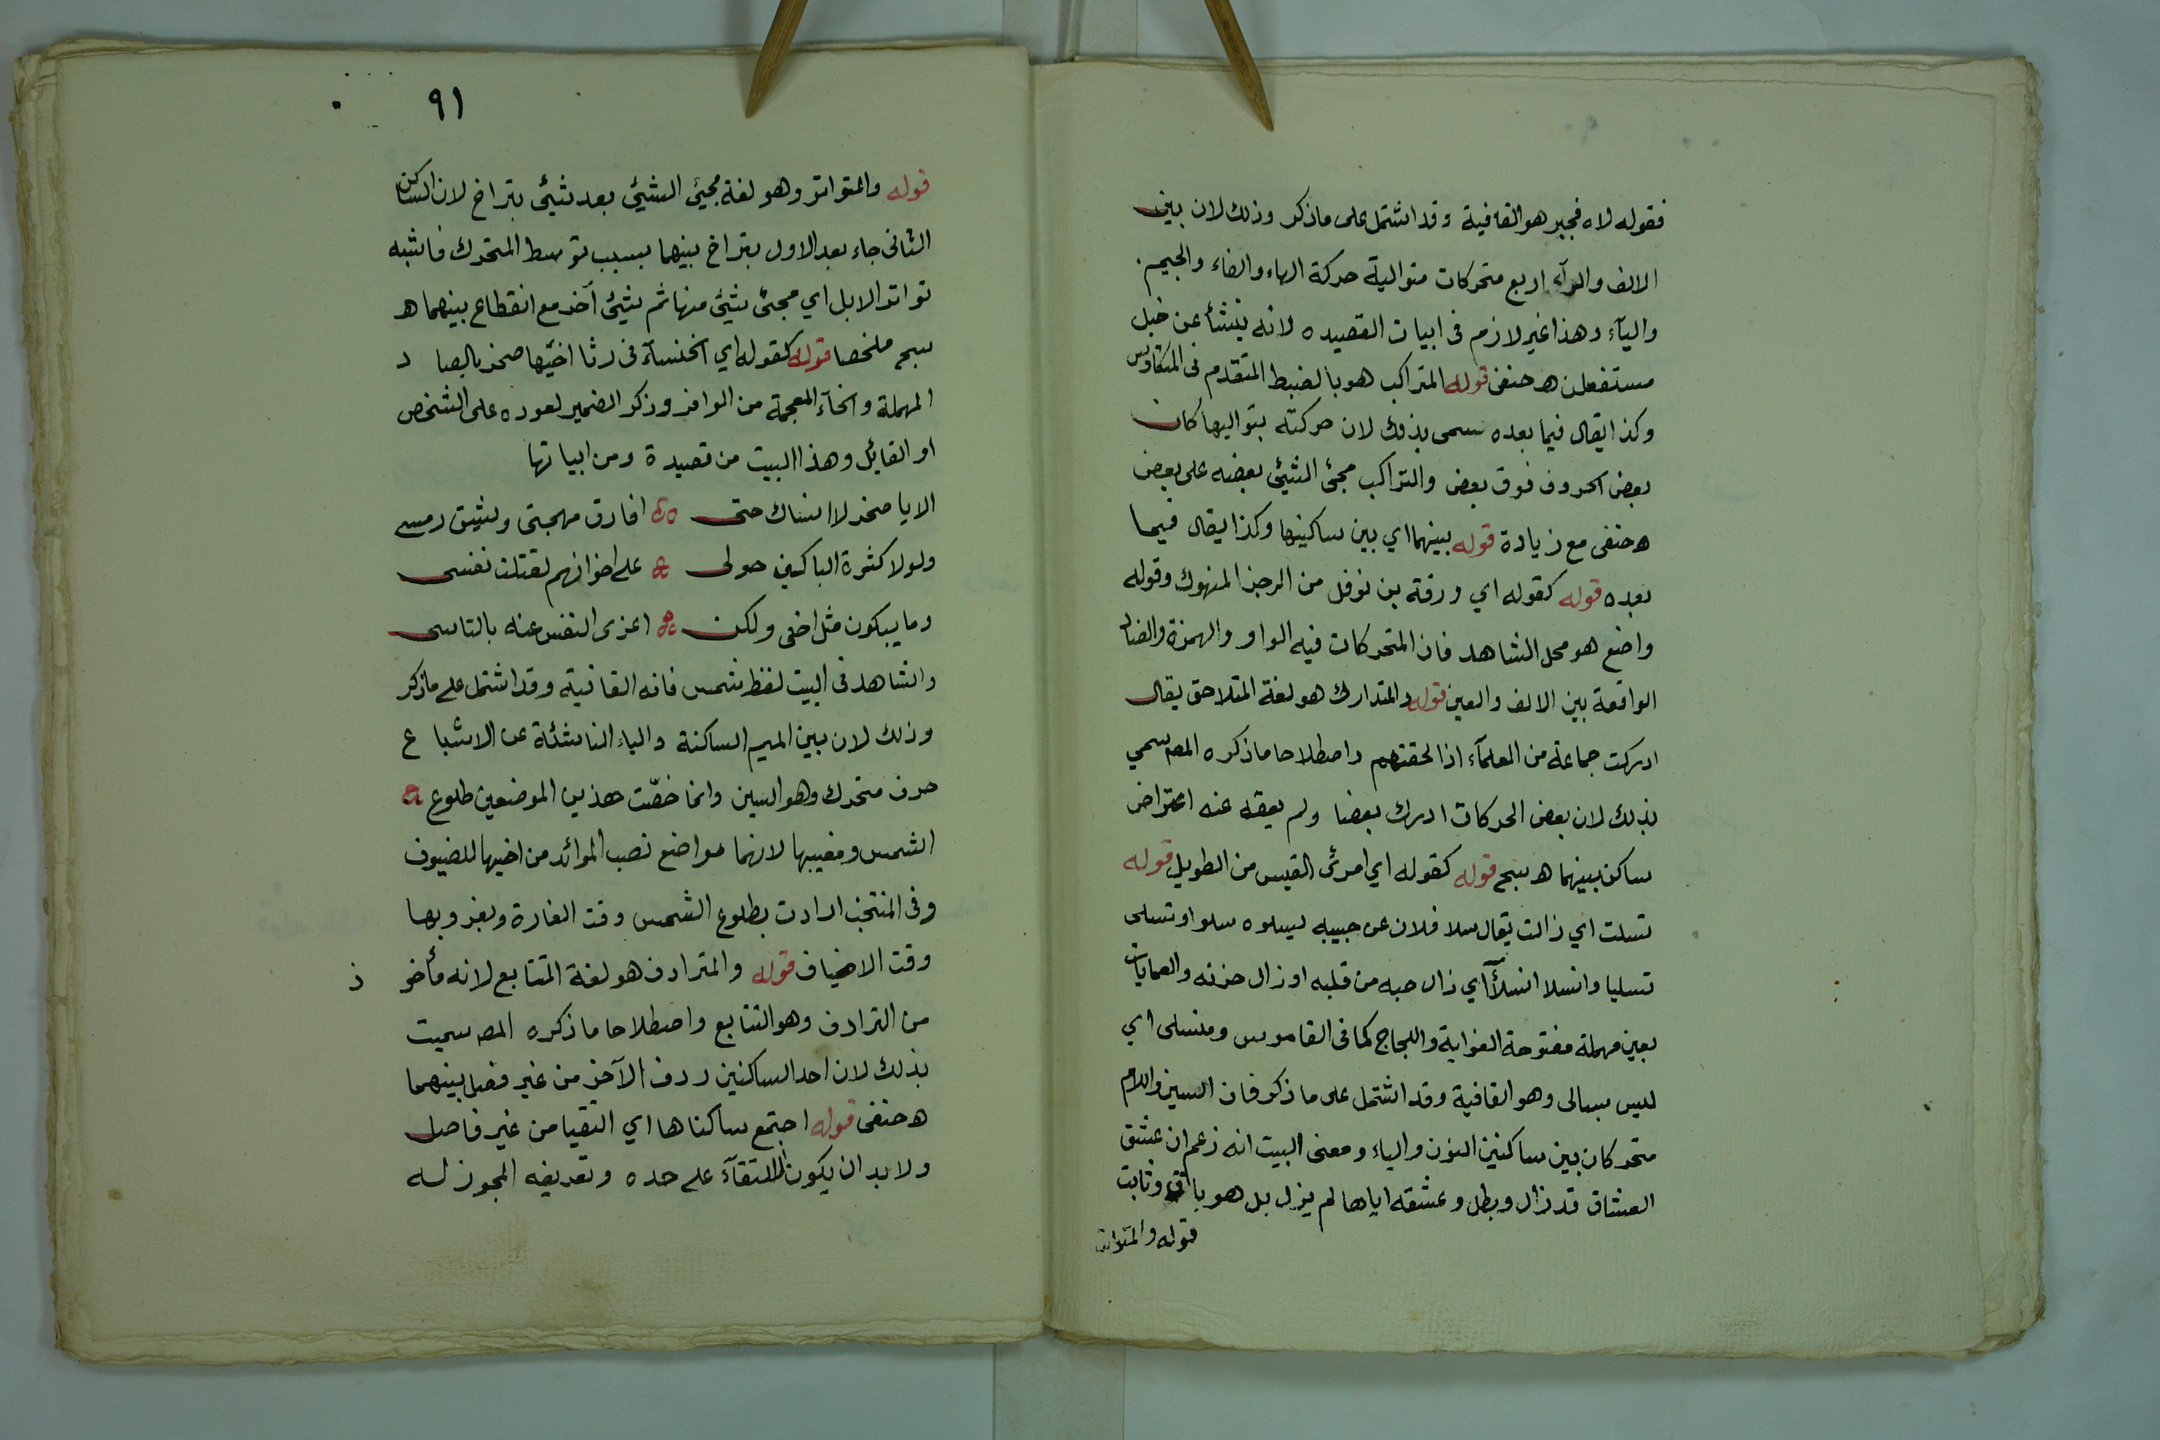 فقوله لاه فجبر هو القافية وقد اشتمل على ما ذكر وذلك لان بين
الالف والرآء اربع متحركات متوالية حركة الهاء والفاء والجيم
والبآء وهذا غير لازم فى ابيات القصيده لانه ينشأ عن خبل
مستفعلن ه حنفى قوله المتراكب هو بالضبط المتقدم فى المتكاوس
وكذا يقال فيما بعده سمى بذلك لان حركته بتواليها كان
بعض الحروف فوق بعض والتراكب مجئ الشيئ بعضه على بعض
ه حنفى مع زيادة قوله بينهما اي بين ساكنيها وكذا يقال فيما
بعده قوله كقوله اي ورقة بن نوفل من الرجز المنهوك وقوله
واضع هو محل الشاهد فان المتحركات فيه الواو والهمزة والضاد
الواقعة بين الالف والعين قوله والمتدارك هو لغة المتلاحق يقال
ادركت جماعة من العلمآء اذا لحقتهم واصطلاحا ما ذكره المص سمي
بذلك لان بعض الحركات ادرك بعضا ولم يعقه عنه اعتراض
ساكن بينهما ه سجم قوله كقوله اي امرئ القيس من الطويل قوله
تسلت اي زالت يقال سلا فلان عن حبيبه يسلوه سلوا وتسلى
تسليا وانسلا انسلآأي زال حبه من قلبه او زال حزنه والعمايات
بعين مهملة مفتوحة الغواية واللجاج كما فى القاموس ومنسلى اي
ليس بسالى وهو القافية وقد اشتمل على ما ذكر فان السين واللام
متحركان بين ساكنين النون والياء ومعنى البيت انه زعم ان عشق
العشاق قد زال وبطل وعشقه اياها لم يزل بل هو باقى وثابت
قوله والمتواتر
٩١
قوله والمتواتر وهو لغة مجيئ الشيئ بعد شيئ بتراخ لان الساكن
الثانى جاء بعد الاول بتراخ بينهما بسبب توسط المتحرك فاشبه
تواتر الابل اي مجئ شيئ منها ثم شيئ آخر مع انقطاع بينهما ه
سجم ملخصا قوله كقوله اي الخنسآء فى رثا اخيها صخر بالصا د
المهملة والخآء المعجمة من الوافر وذكر الضمير لعوده على الشخص
او القايل وهذا البيت من قصيدة ومن ابياتها
الا يا صخر لا انساك حتى افارق مهجتى ويشق رمسي
ولولا كثرة الباكين حولى على اخوانهم لقتلت نفسى
وما يبكون مثل اخى ولكن اعزى النفس عنه بالتاسى
والشاهد فى البيت لفظ شمس فانه القافية وقد اشتمل على ما ذكر
وذلك لان بين الميم الساكنة والياء الناشئة عن الاشبا ع
حرف متحرك وهو السين وانما خصّت هذين الموضعين طلوع
الشمس ومغيبها لانهما مواضع نصب الموائد من اخيها للضيوف
وفى المنتخب ارادت بطلوع الشمس وقت الغارة وبغروبها
وقت الاضياف قوله والمترادف هو لغة المتتابع لانه مأخو ذ
من الترادف وهو التتابع واصطلاحا ما ذكره المص سميت
بذلك لان احد الساكنين ردف الآخر من غير فصل بينهما
ه حنفى قوله اجتمع ساكناها اي التقيا من غير فاصل
ولا بد ان يكون الالتقآء على حده وتعريفه المجوز له